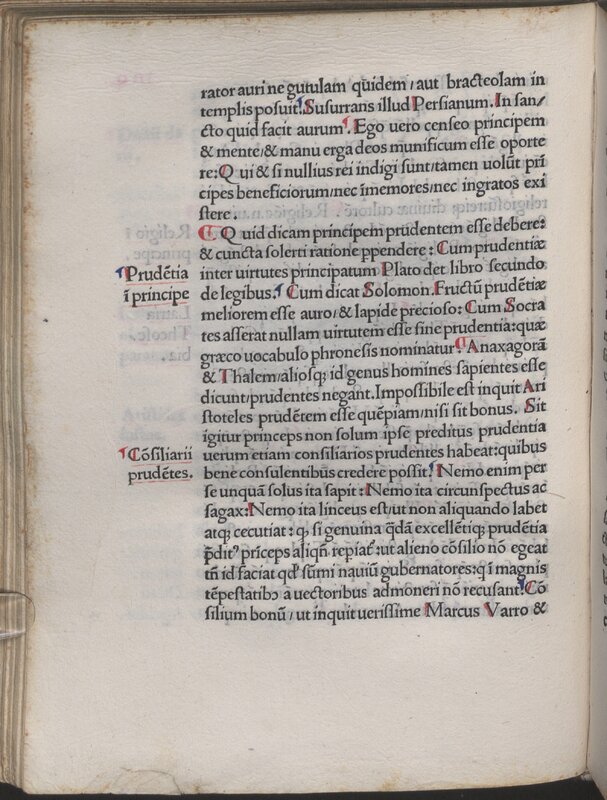 rator auri ne gutulam quidem / aut bracteolam in
templis posuit. Susurrans illud Persianum. In san/
cto quid facit aurum. Ego uero censeo principem
& mente/& manu erga deos munificum esse oporte
re: Qui & si nullius rei indigi sunt/tamen uolūt prī
cipes beneficiorum/nec īmemores/nec ingratos exi
stere.
Quid dicam principem prudentem esse debere:
& cuncta solerti ratione ppendere: Cum prudentiæ
Prudētia
inter uirtutes principatum Plato det libro secundo
ī principe
de legibus. Cum dicat Solomon. Fructū prudētiæ
meliorem esse auro/& lapide precioso: Cum Socra
tes asserat nullam uirtutem esse sine prudentia: quæ
græco uocabulo phronesis nominatur. Anaxagorā
& Thalem/aliosqꝫ id genus homines sapientes esse
dicunt/prudentes negant. Impossibile est inquit Ari
stoteles prudētem esse quēpiam/nisi sit bonus. Sit
igitur princeps non solum ipse preditus prudentia
Cōsiliarii
uerum etiam consiliarios prudentes habeat: quibus
prudētes.
bene consulentibus credere possit. Nemo enim per
se unquā solus ita sapit: Nemo ita circunspectus ac
sagax: Nemo ita linceus est/ut non aliquando labet
atqꝫ cecutiat: qꝫ si genuina qdā excellētiqꝫ prudētia
p̄ditꝰ prīceps aliqñ repiat: ut alieno cōsilio nō egeat
tñ id faciat qđ sūmi nauiū gubernatores: qi magnis
tēpestatibꝫ a uectoribus admoneri nō recusant. Cō
silium bonū / ut inquit uerissime Marcus Varro &